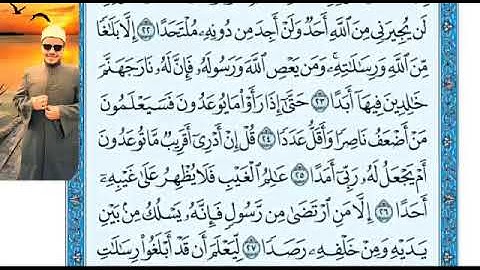 لَن يُجِيرَنِي مِنَ ٱللَّهِ أَحَدٌ وَلَنْ أَجِدَ مِن دُونِهِۦ مُلْتَحَدًا ٢٢ إِلَّا بَلَٰغًا
مِّنَ ٱللَّهِ وَرِسَٰلَٰتِهِۦۚ وَمَن يَعْصِ ٱللَّهَ وَرَسُولَهُۥ فَإِنَّ لَهُۥ نَارَ جَهَنَّمَ
خَٰلِدِينَ فِيهَآ أَبَدًا ٢٣ حَتَّىٰٓ إِذَا رَأَوْا۟ مَا يُوعَدُونَ فَسَيَعْلَمُونَ
مَنْ أَضْعَفُ نَاصِرًا وَأَقَلُّ عَدَدًا ٢٤ قُلْ إِنْ أَدْرِىٓ أَقَرِيبٌ مَّا تُوعَدُونَ
أَمْ يَجْعَلُ لَهُۥ رَبِّىٓ أَمَدًا ٢٥ عَٰلِمُ ٱلْغَيْبِ فَلَا يُظْهِرُ عَلَىٰ غَيْبِهِۦٓ
أَحَدًا ٢٦ إِلَّا مَنِ ٱرْتَضَىٰ مِن رَّسُولٍ فَإِنَّهُۥ يَسْلُكُ مِنۢ بَيْنِ
يَدَيْهِ وَمِنْ خَلْفِهِۦ رَصَدًا ٢٧ لِّيَعْلَمَ أَن قَدْ أَبْلَغُوا۟ رِسَٰلَٰتِ